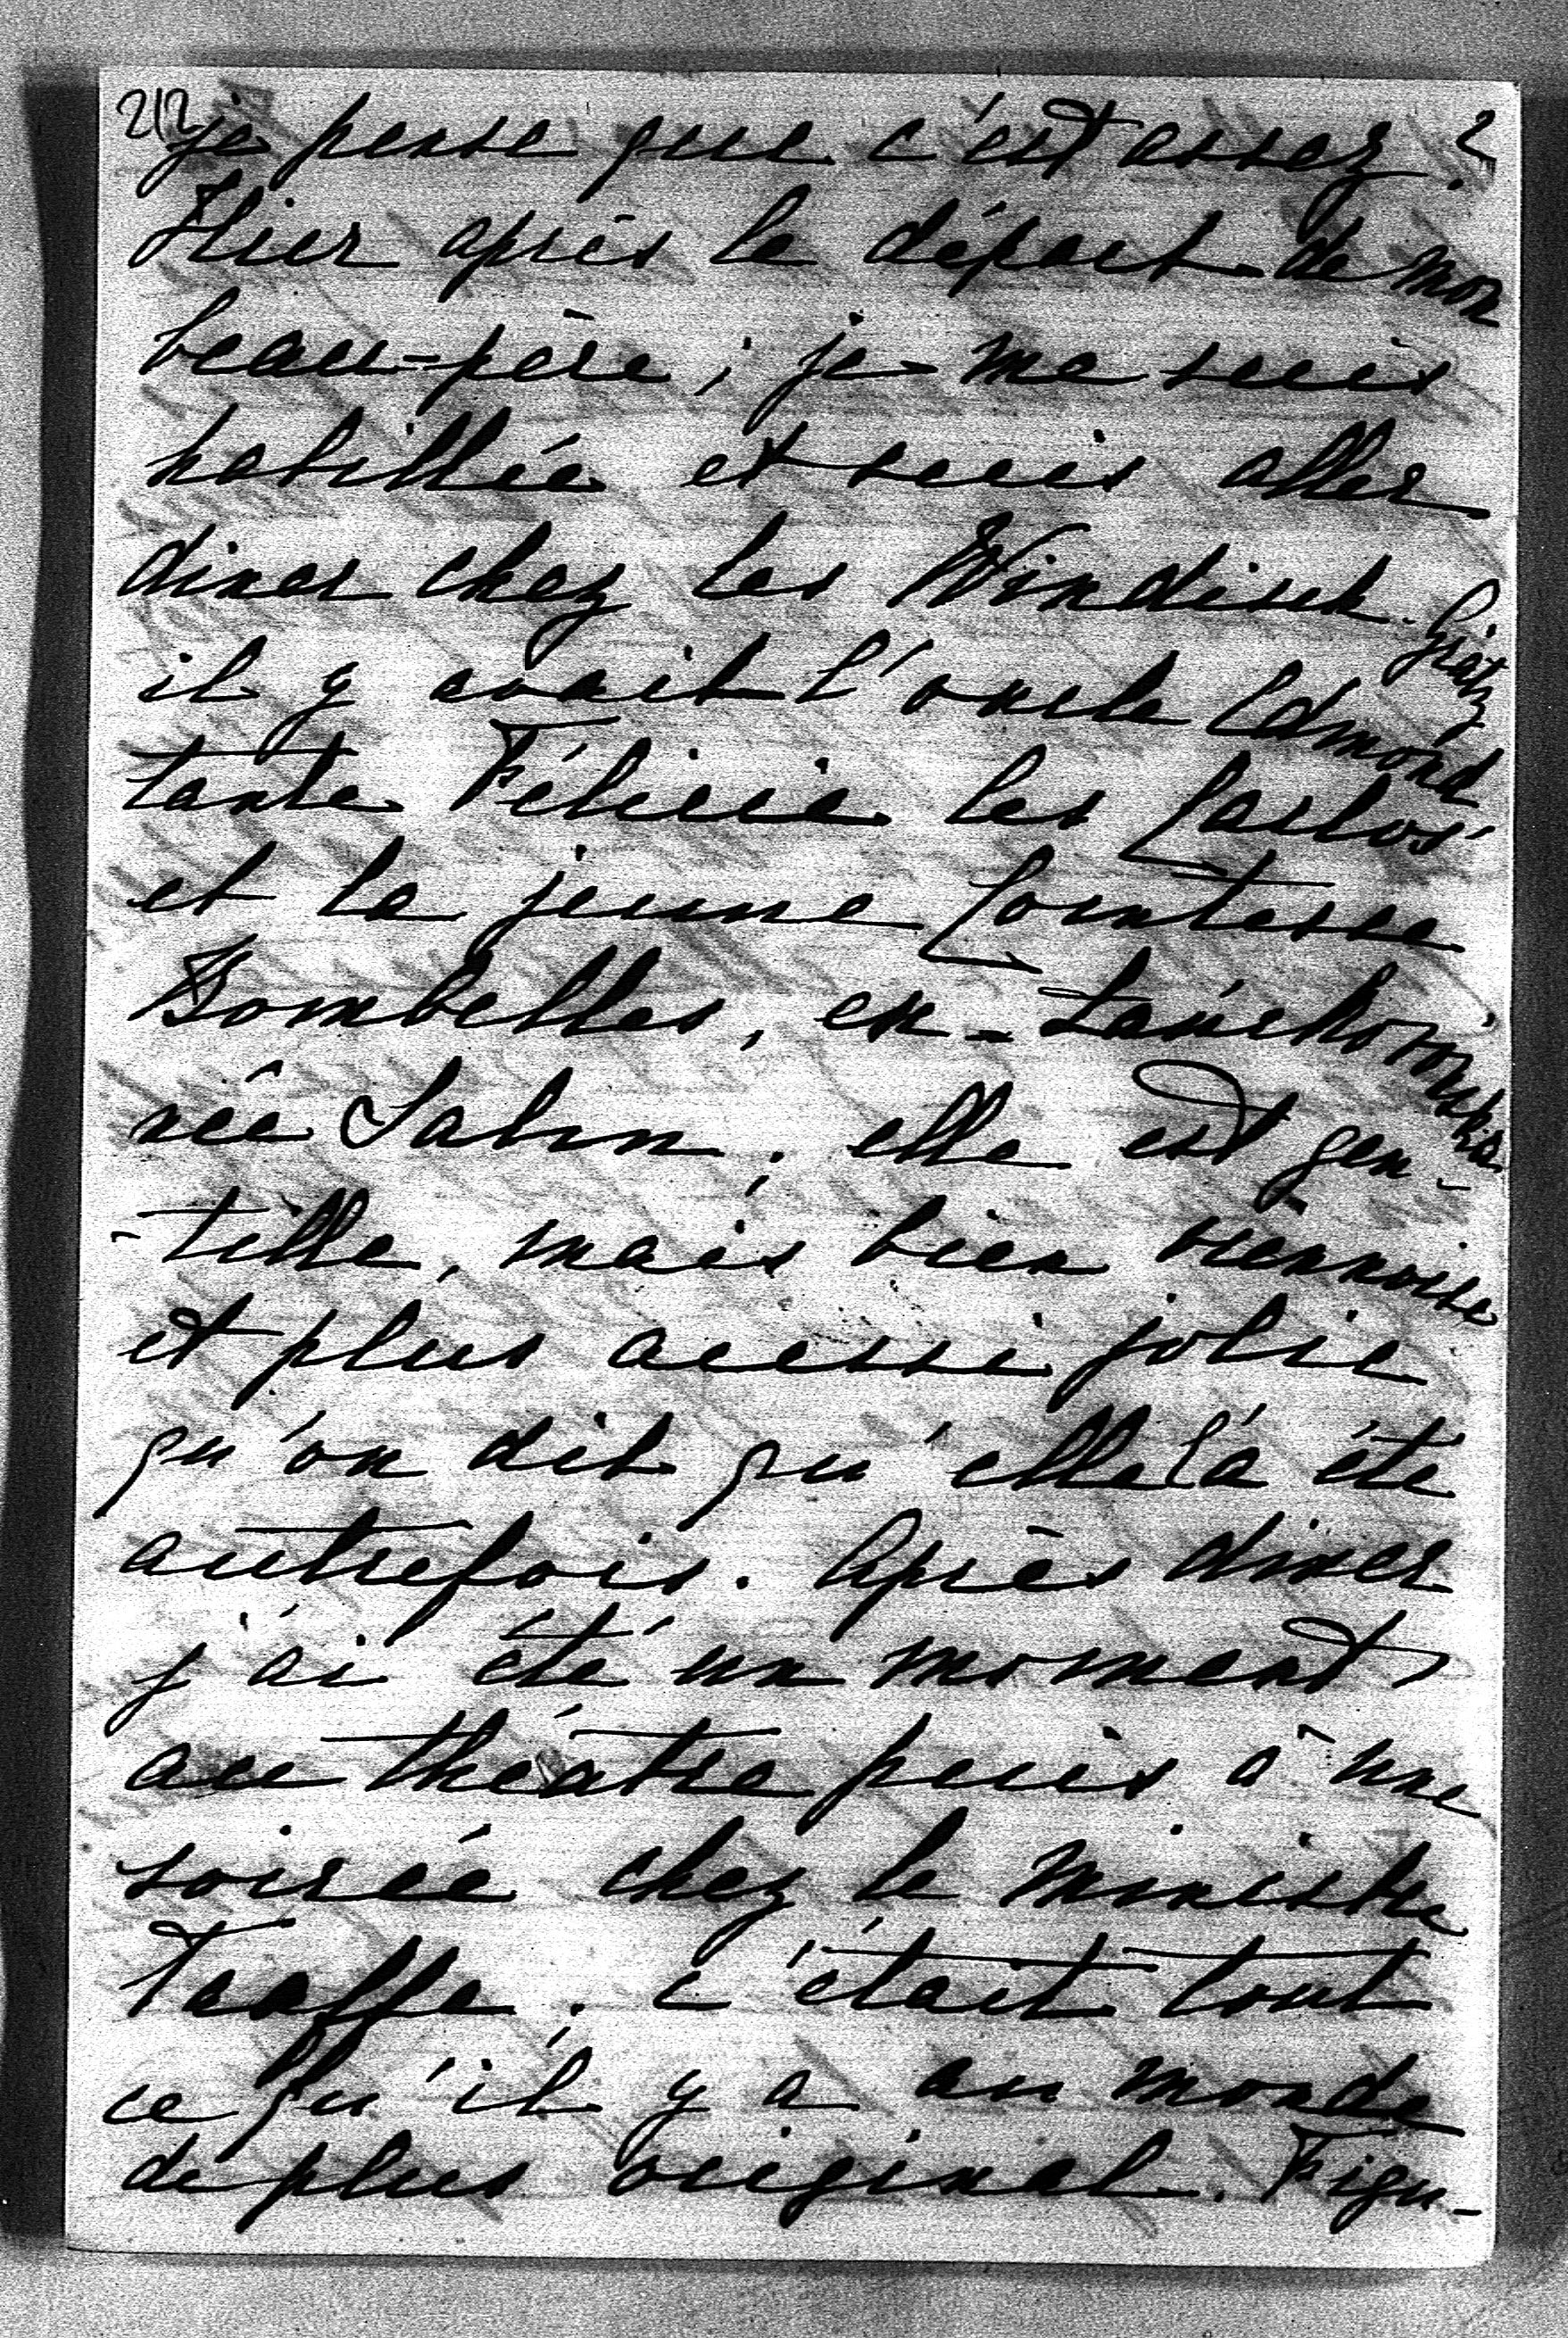 212
je pense que c'est assez ?
Hier après le départ de mon
beau-père ; je me suis
habillée et suis aller
diner chez les Windisch-Grätz
il y avait l'oncle Edmond
tante Félicie les Carlos'
et la jeune Comtesse
Bombelles, ex-
née Salm ; elle est gen-
-tille, mais bien viennoise
et plus aussi jolie
qu'on dit qu'elle l'a été
autrefois. Après diner
j'ai été un moment
au théatre puis à une
soirée chez le ministre
Taaffe ; c'était tout
ce qu'il y a au monde
de plus original. Figu-